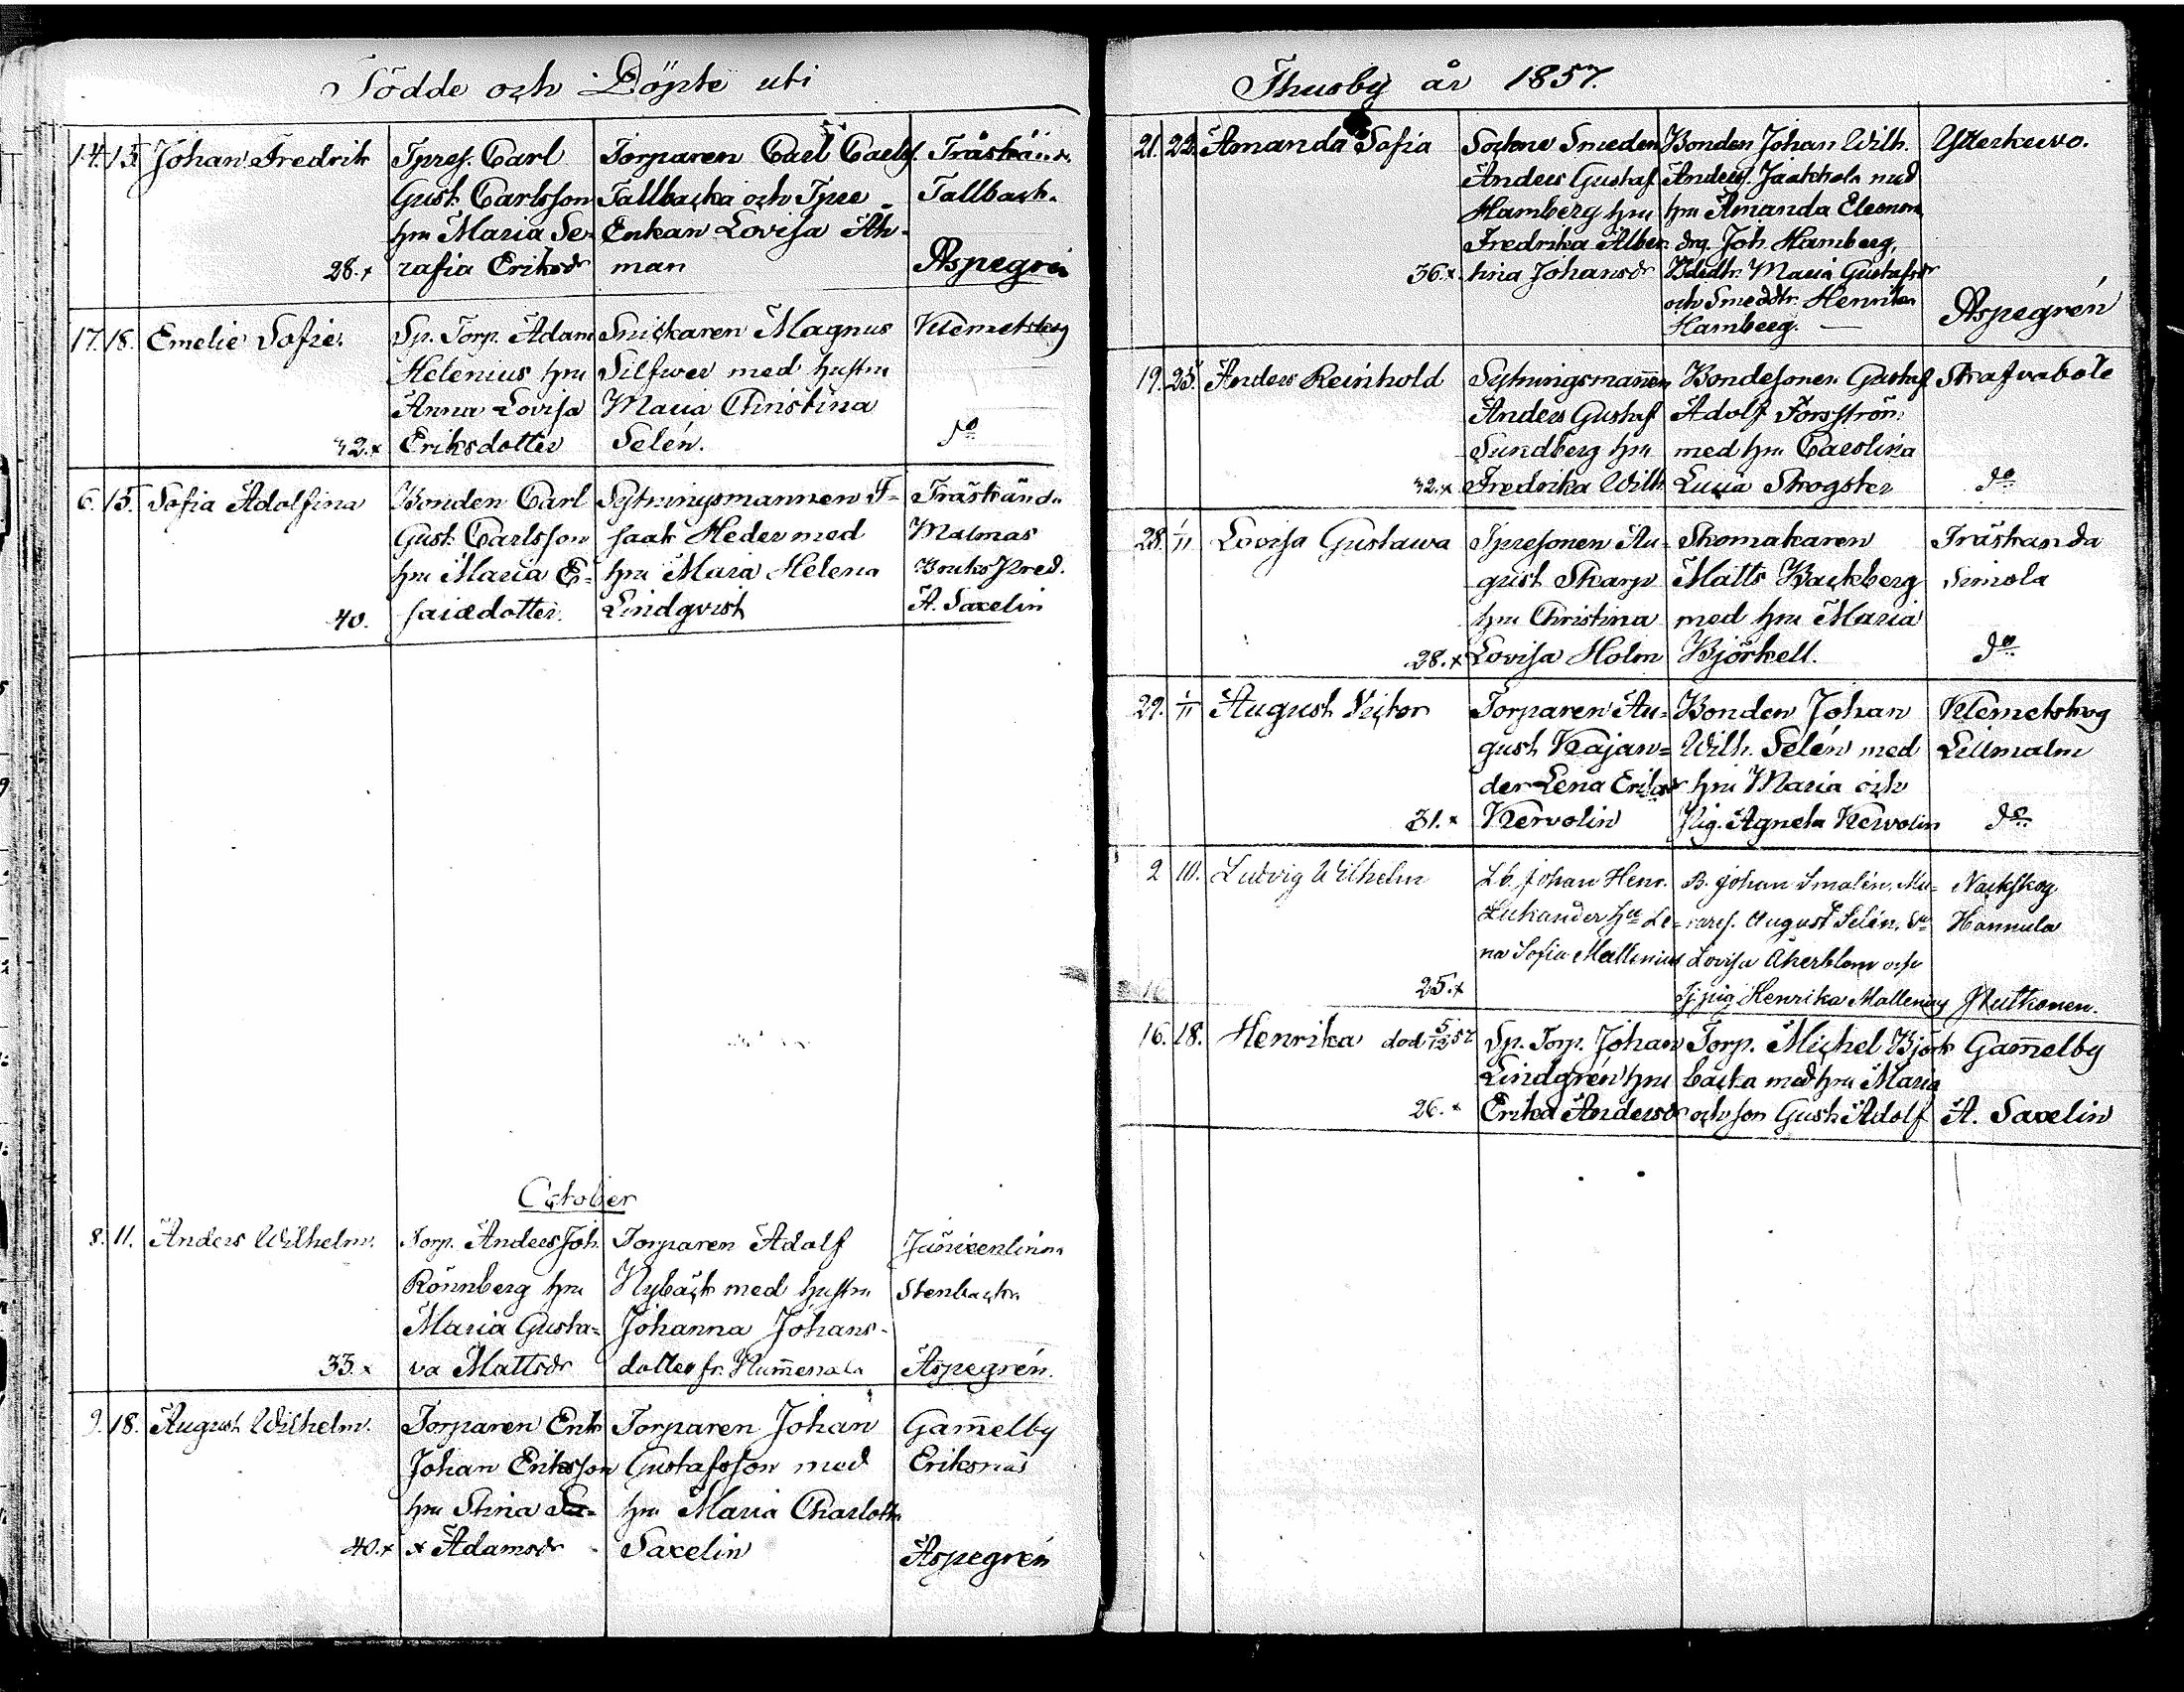 Födde och Döpte uti
14. 15. Johan Fredrik
Tpres. Carl
Gust. Carlsson
hm Maria Se-
28.x rafia Eriksdr
Torparen Carl Carls.
Tallbacka och Tpre-
Enkan Lovisa Åh-
man
Träskända
Tallback.
Aspegrén
17. 18. Emelie Sofie.
Sp. Torp. Adam
Helenius hm
Anna Lovisa
32.x Eriksdotter
Snickaren Magnus
Silfwer med hustru
Maria Christina
Selén.
Klemetskog
do
6. 15. Sofia Adolfina
Bonden Carl
Gust. Carlsson
hm Maria E-
40. saiædotter.
Sytningsmannen I-
saak Heder med
hm Maria Helena
Lindqvist
Träskända
Malmas
Bruks Pred.
A. Saxelin
October
8. 11. Anders Wilhelm.
Torp. Anders Joh.
Rönnberg hm
Maria Gusta-
33.x va Mattsdr
Torparen Adolf
Nybäck med hustru
Johanna Johans-
dotter fr. Nummenala
Stenbacka
Aspegrén.
9. 18. August Wilhelm.
Torparen Erik
Johan Eriksson
hm Stina
40.x x Adamsdr
Torparen Johan
Gustafsson med
hm Maria Charlotta
Saxelin
Gammelby
Eriksnäs
Aspegrén
Thusby år 1857.
21. 22. Amanda Sofia
Sockne Smeden
Anders Gustaf
Hamberg hm
Fredrika Alber-
36.x tina Johansdr
Bonden Johan Wilh.
Anders. Jaakkola med
hm Amanda Eleonora
drg. Joh. Hamberg,
Bdedtr. Maria Gustafsdr
och Smeddtr. Henrika
Hamberg. —
Ytterkervo.
Aspegrén
19. 25. Anders Reinhold
Sytningsmannen
Anders Gustaf
Sundberg hm
32.x Fredrika Wilh
Bondesonen Gustaf
Adolf Forsström
med hm Carolina
Lucia Skogster
Skafvaböle
do
28. 1/11 Lovisa Gustawa
Tpresonen Au-
gust Skarp
hm Christina
28.x Lovisa Holm
Skomakaren
Matts Backberg
med hm Maria
Björkell.
Träskända
Simola
do
29. 1/11 August Victor
Torparen Au-
gust Kajan-
der Lena Eriksdr
31.x Kervolin
Bonden Johan
Wilh. Selén med
hm Maria och
Pig. Agneta Kervolin
Klemetskog
Lillmalm
do
2 10. Ludvig Wilhelm
Johan Henr.
Lukander hu Le-
na Sofia Mallenius
25.x
B. Johan Smalén, Mu-
rares. August Selén,
Lovisa Åkerblom och
Tjpig Henrika Mallenius
Nackskog
Hannula
Hutkonen.
16. 18. Henrika död 5/12 57
Sp. Torp. Johan
Lindgrén hm
26.x Erika Andersdr
Torp. Michel Björk-
backa med hm Maria
och son Gust. Adolf
Gammelby
A. Saxelin